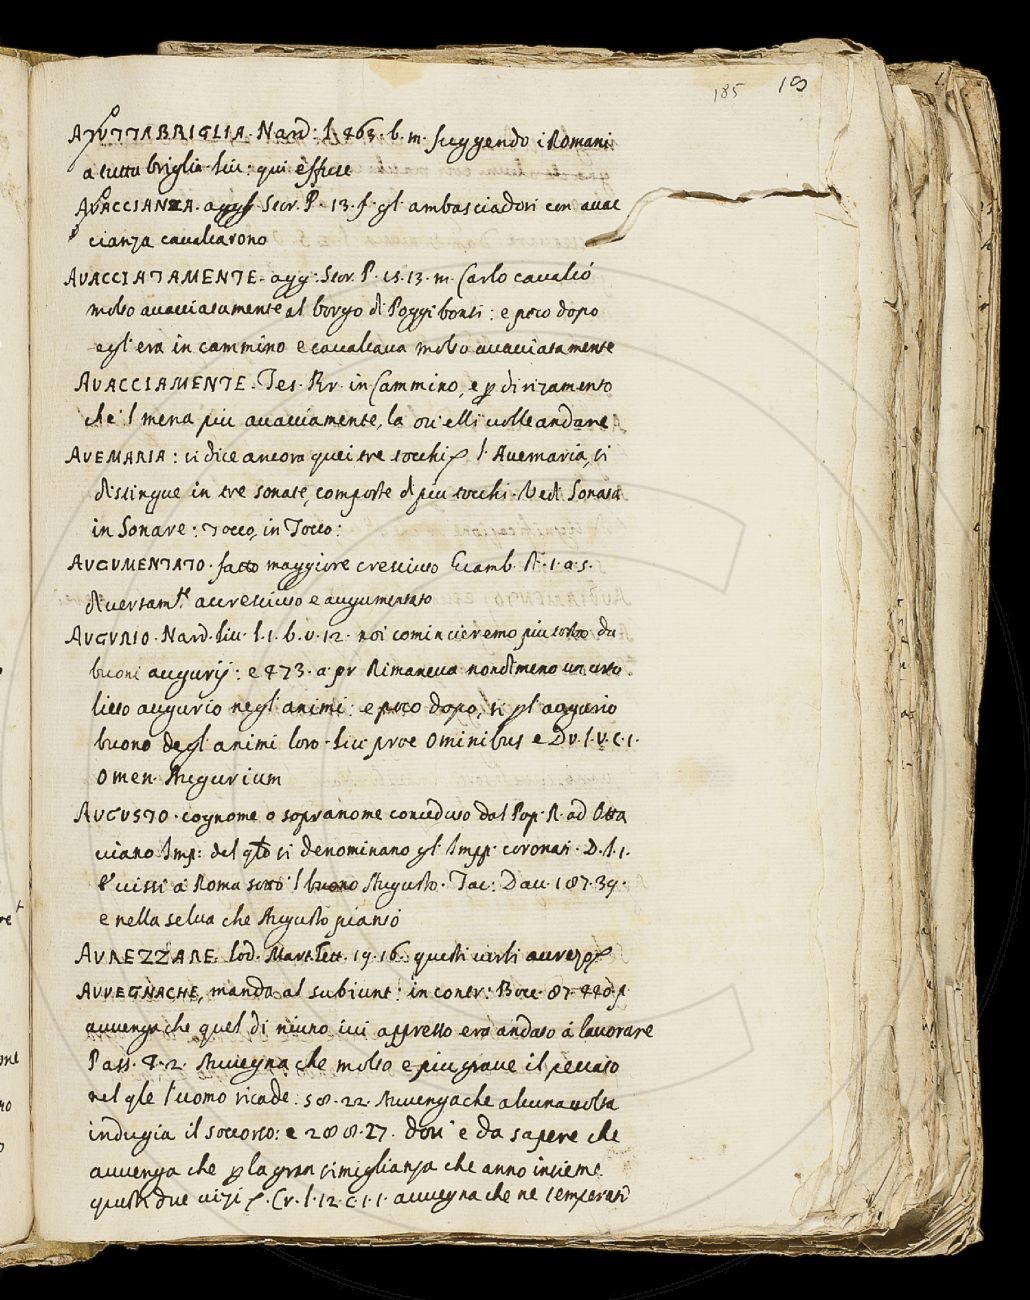 185 183
ATUTTABRIGLIA. Nard: l. 463. b. m. fuggendo i Romani
a tutta briglia. Liv: qui effuse
AVACCIANZA. agg. Stor. P. 13. f. gl' ambasciadori con avac
cianza cavalcarono
AVACCIATAMENTE. agg: Stor. P. 15. 13. m. Carlo cavalcò
molto avacciatamente al borgo di Poggibonsi: e poco dopo
egl' era in cammino e cavalcava molto avacciatamente
AVACCIAMENTE. Tes. Br. in Cammino, e p dirizamento
che 'l mena più avacciamente, la ov' elli volle andare
AVEMARIA: si dice ancora quei tre tocchi p l' Avemaria, si
distingue in tre sonate, composte di più tocchi. Vedi Sonata
in Sonare: Tocco, in Tocco:
AUGUMENTATO. fatto maggiore cresciuto Giamb. R. 1. a. 5.
diversam.te accresciuto e augumentato
AUGURIO. Nard. Liv. l. 1. b. v. 12. noi comincieremo più tosto da
buoni augurij: e 473. a. pr Rimaneva nondimeno un certo
lieto augurio negl' animi: e poco dopo, si pl' augurio
buono degl' animi loro. Liv: proe Ominibus e Dv. l. v. c. 1.
Omen. Augurium
AUGUSTO. cognome o sopranome conceduto dal Pop. R. ad Otta
viano Imp: del qto si denominano gl' Impp. coronati. D. I. 1.
E vissi a Roma sotto 'l buono Augusto. Tac: Dav. 187. 39.
e nella selva che Augusto piantò
AUREZZARE. Lod. Mart. Lett. 19. 16. questi versi
AVVEGNACHE, manda al subiunt: in contr: Bocc. 87. 440. p.
avvengache quel dì niuno ivi appresso era andato à lavorare
Pass. 4. 2. Avvegna che molto e più grave il peccato
nel qle l'uomo ricade: 58. 22. Avvengache alcuna volta
indugia il soccorso: e 288. 27. dov' e da sapere che
avvenga che p la gran simiglianza che anno insieme
questi due vizi p. Cr. l. 12. c. 1. 1. avvegna che ne temperati